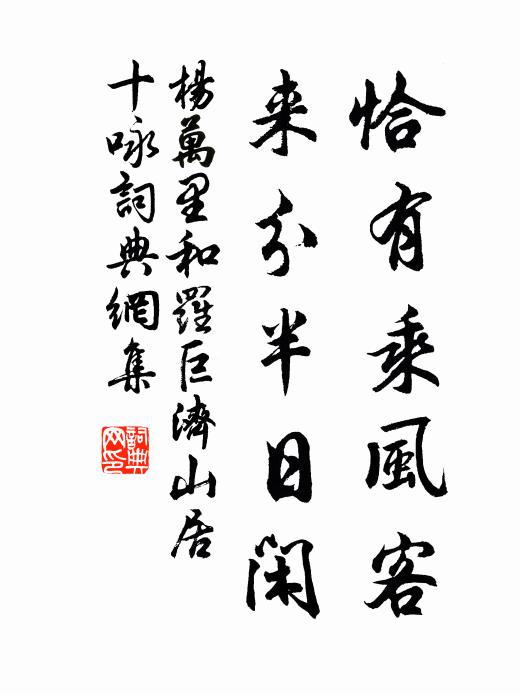 恰有乘風客
来分半日閑
楊萬里和羅巨濟山居
十咏詞典網集
詞典
网印